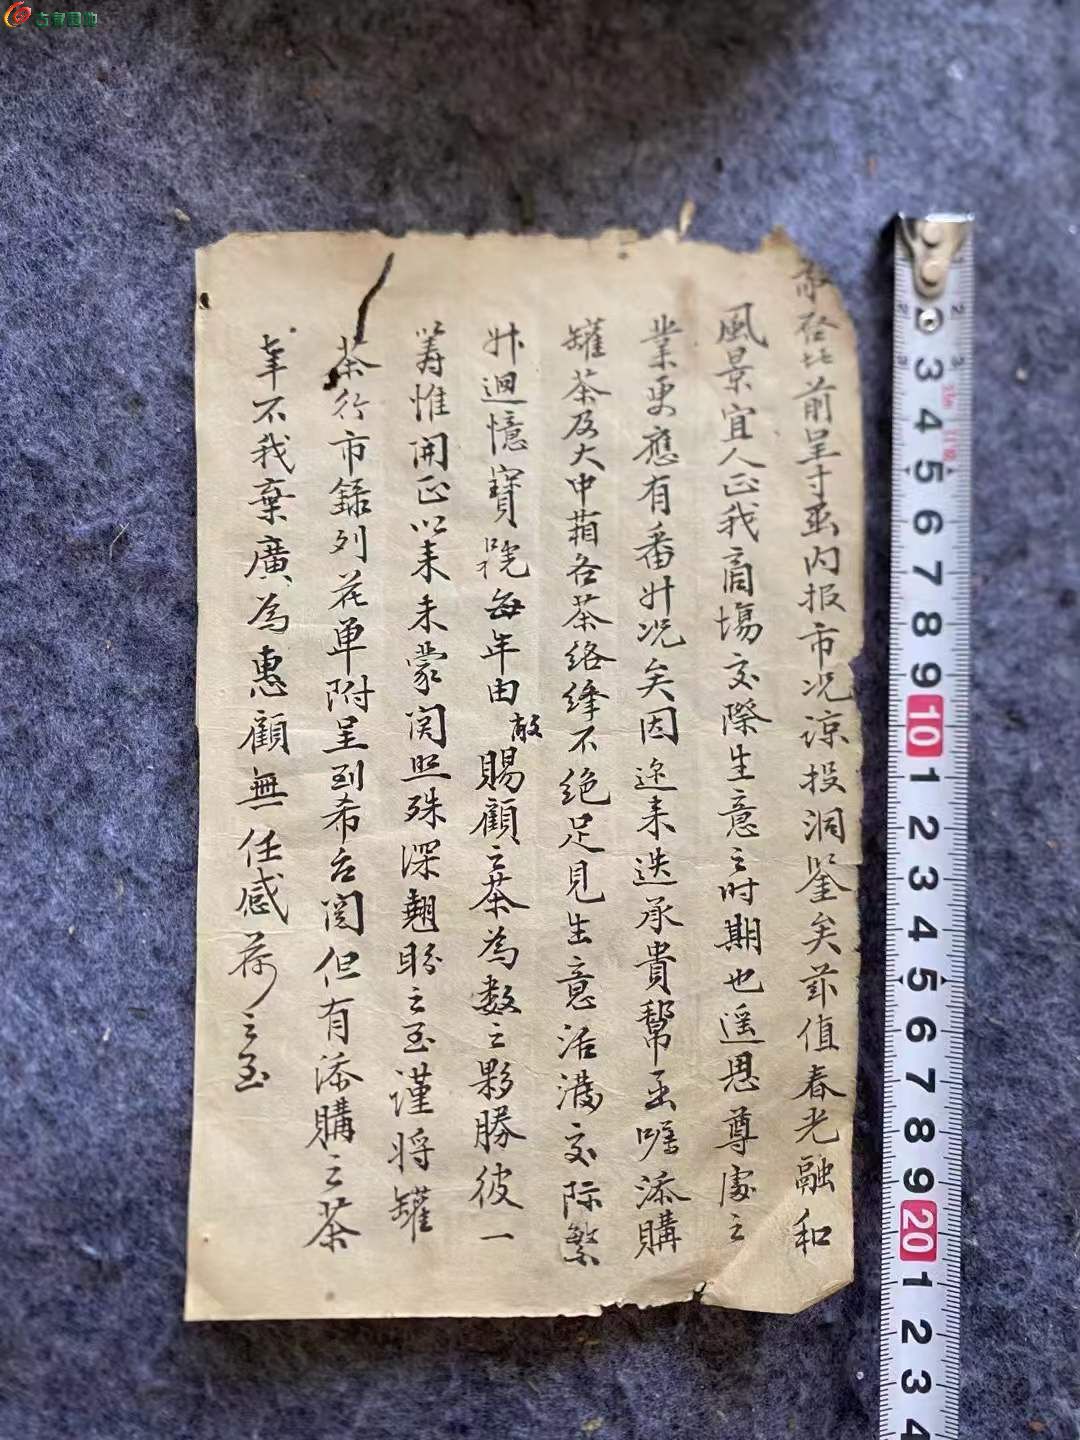 敬啓者前呈寸函内报市况谅投洞鉴矣兹值春光融和
風景宜人正我商場交際生意之时期也遥思尊處之
業更應有番升况矣因迩来迭承貴幫函嘱添購
罐茶及大中箱各茶络绎不绝足見生意活潑交际繁
升迴憶寶號每年由敝賜顧之茶為数之夥勝彼一
籌惟開正以来未蒙関照殊深翹盼之至谨将罐
茶行市録列花单附呈到希台閲但有添購之茶
幸不我棄廣為惠顧無任感荷之至
古家园地
2
3
4
5
6
7
8
9
10
1
2
3
4
5
6
7
8
9
20
1
2
3
4